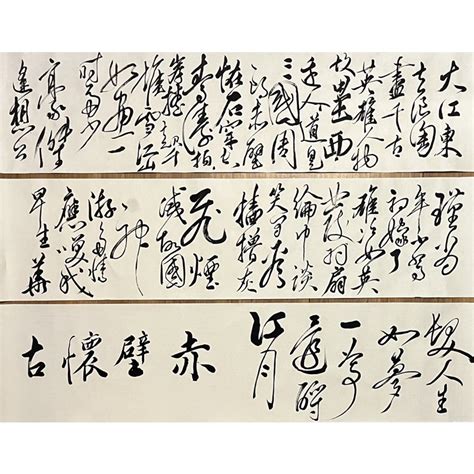 大江東
去浪淘
盡千古
英雄人物
故壘西
邊人道是
三國周
郎赤壁
石穿空
濤拍
岸捲起千
堆雪江
如畫一
時多少
豪傑
遙想公
瑾當
年小喬
初嫁了
雄姿英
發羽扇
綸巾談
笑間
檣櫓灰
飛煙
滅故國
神
游多情
應笑我
早生華
髮人生
如夢
一尊
還酹
江月
赤壁懷古